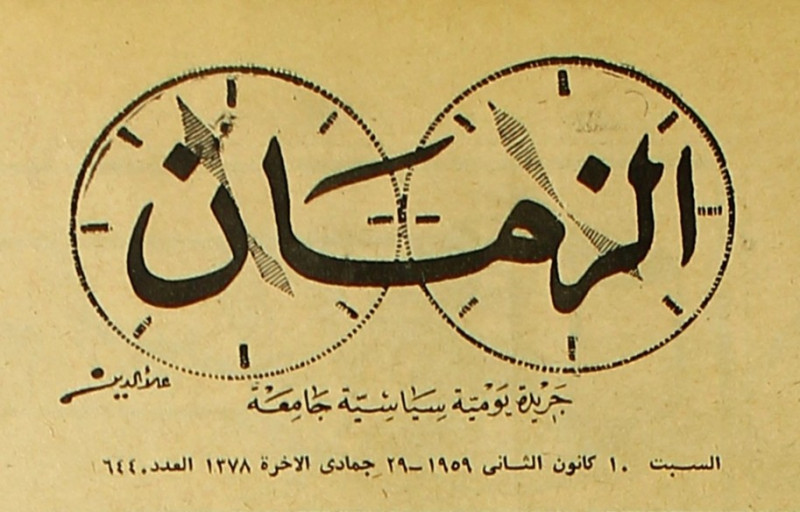 الزمان
علاءالدين
جَرْيْدَة يَوْمْيَة سِيَاسْيَّة جَامِعَة
السبت ١٠ كانون الثانى ١٩٥٩ـ٢٩ جمادى الاخرة ١٣٧٨ العدد٦٤٤٠